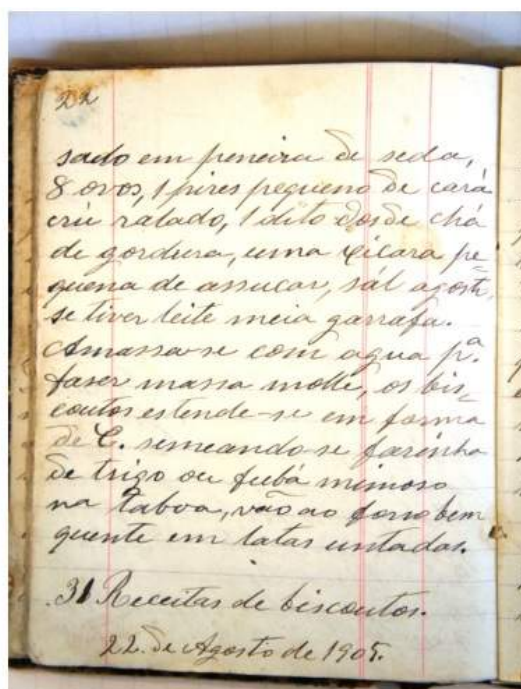 22
sado em peneira de seda,
8 ovos, 1 pires pequeno de cará
crú ralado, 1 dito dos de chá
de gordura, uma chicara pe-
quena de assucar, sál agosto,
se tiver leite meia garrafa.
Amassa-se com agua pª.
faser massa molle, os bis-
coutos estende-se em forma
de C. semeando-se farinha
de trigo ou fubá mimoso
na taboa, vão ao forno bem
quente em latas untadas.
31 Receitas de biscoutos.
22. de Agosto de 1905.